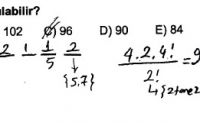 ulabilir?
102 C) 96 D) 90 E) 84
2 1 1 2
5
{5,7}
4.2.4! = 9
2!
4 {2 tane 2